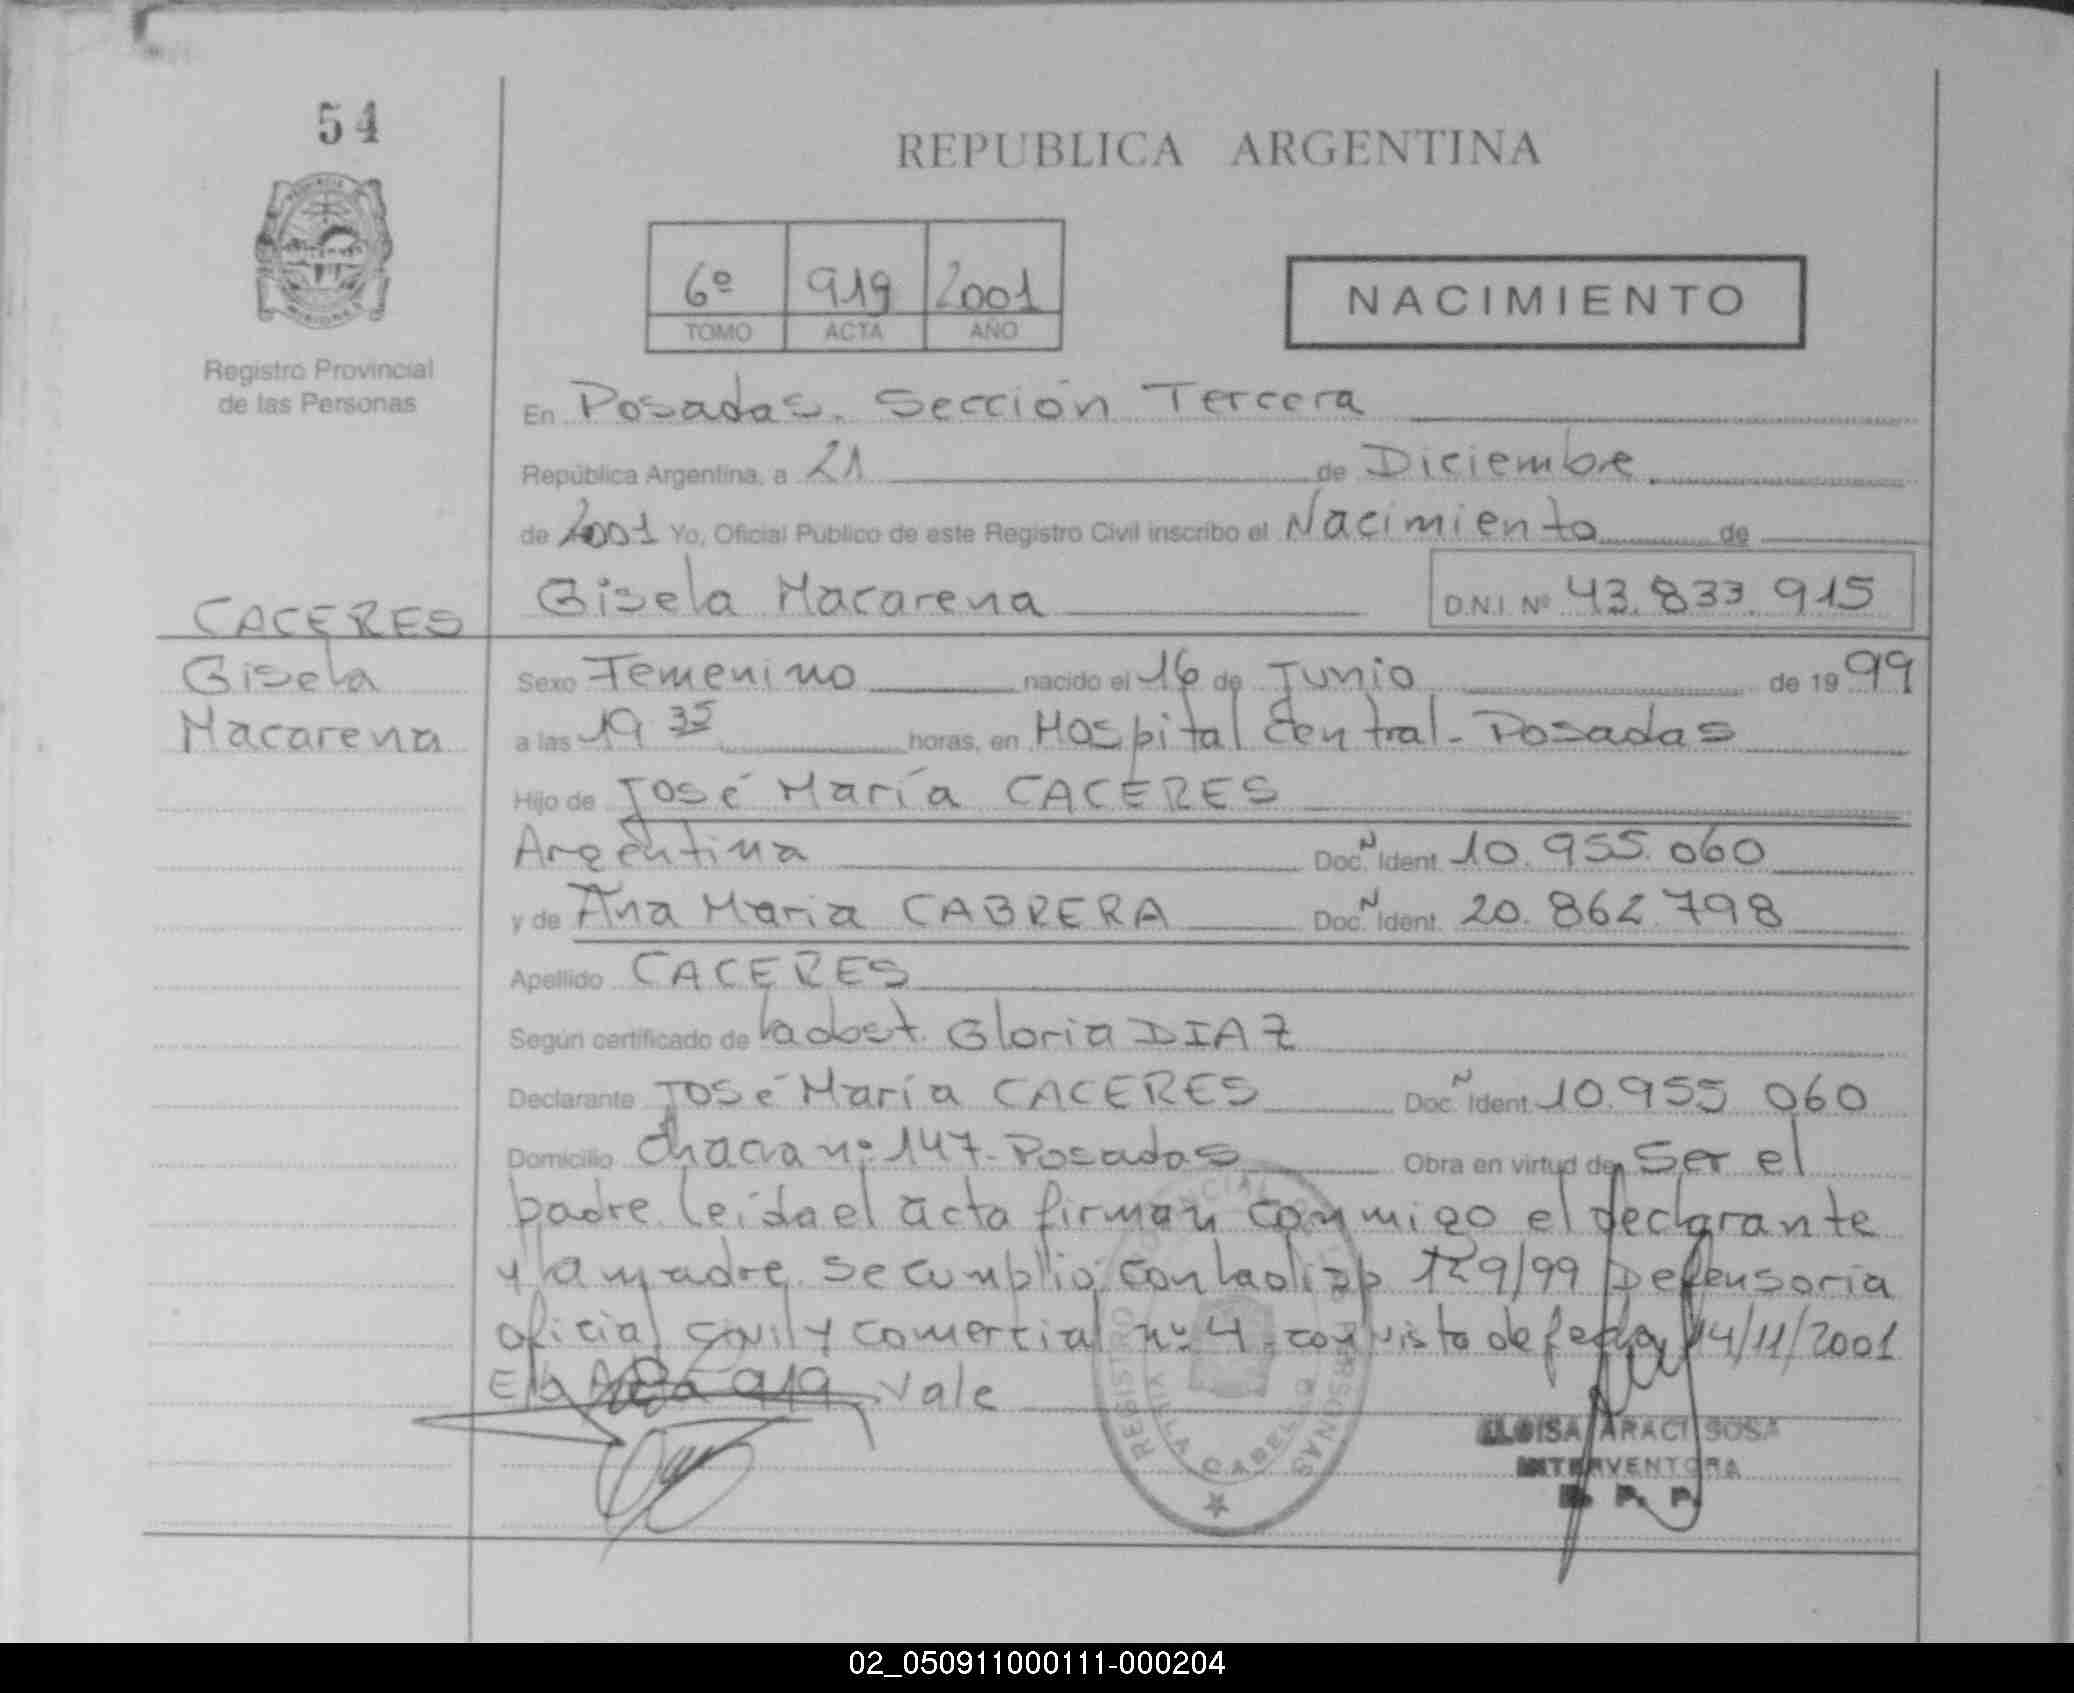 54
REPUBLICA ARGENTINA
6º 919 2001
TOMO ACTA AÑO
NACIMIENTO
Registro Provincial
de las Personas
En Posadas. Sección Tercera
República Argentina, a 21 de Diciembre
de 2001 Yo, Oficial Público de este Registro Civil inscribo el Nacimiento de
Gisela Macarena D.N.I. Nº 43.833.915
CACERES
Gisela
Macarena
Sexo Femenino nacido el 16 de Junio de 1999
a las 19 35 horas, en Hospital Central - Posadas
Hijo de José María CACERES
Argentina Doc. N Ident. 10.955.060
y de Ana Maria CABRERA Doc. N Ident. 20.862.798
Apellido CACERES
Según certificado de la obst. Gloria DIAZ
Declarante José María CACERES Doc. N Ident. 10.955 060
Domicilio Chacra nº 147 - Posadas Obra en virtud de Ser el
padre. leída el acta firman conmigo el declarante
y la madre. se cumplió con la disp 129/99 Defensoria
oficial civil y comercial nº 4. con visto de fecha 14/11/2001
919 vale
REGISTRO PROVINCIAL PERSONAS
VILLA CABELLO
ELOISA ARACI SOSA
INTERVENTORA
R. P. P.
02_050911000111-000204